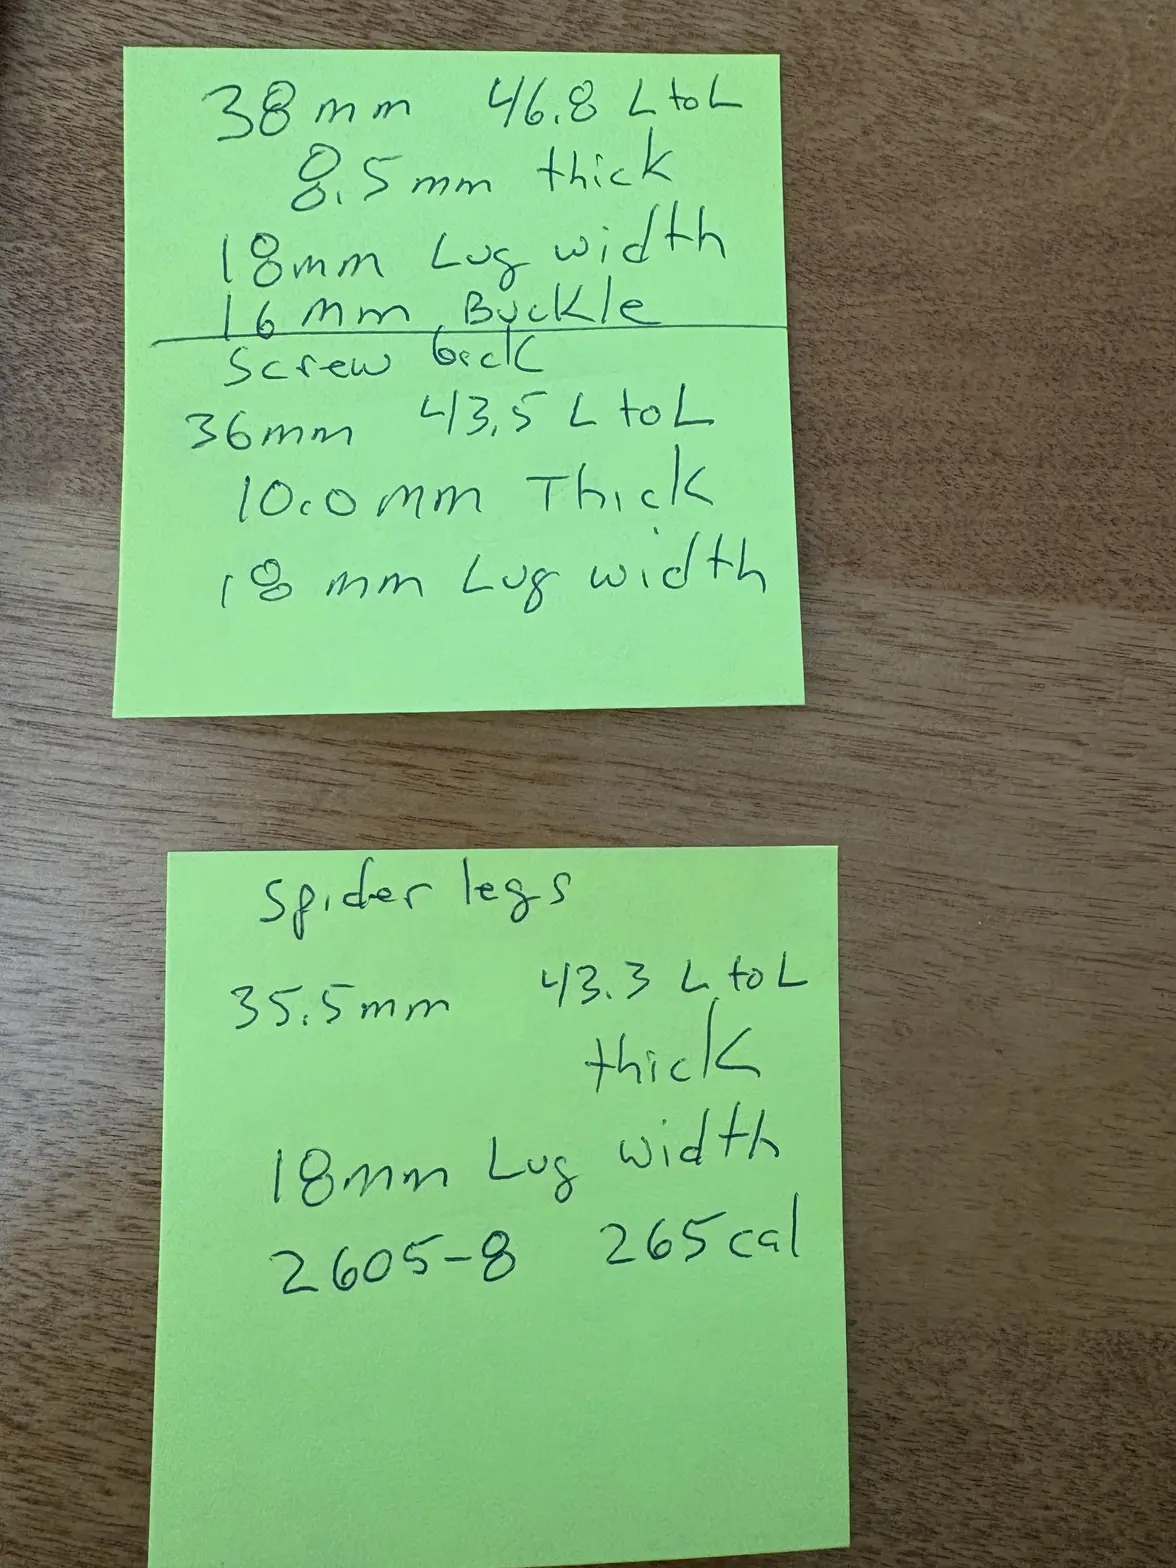 38mm 46.8 L to L
8.5mm thick
18mm Lug width
16mm Buckle
Screw back
36mm 43.5 L to L
10.0mm Thick
18mm Lug width
spider legs
35.5mm 43.3 L to L
thick
18mm Lug width
2605-8 265cal